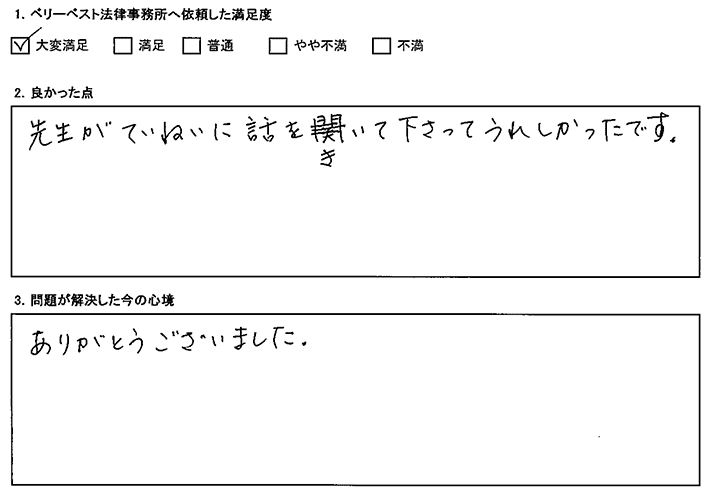 1. ベリーベスト法律事務所へ依頼した満足度
☑ 大変満足 ☐ 満足 ☐ 普通 ☐ やや不満 ☐ 不満
2. 良かった点
先生がていねいに話をきいて下さってうれしかったです。
3. 問題が解決した今の心境
ありがとうございました.